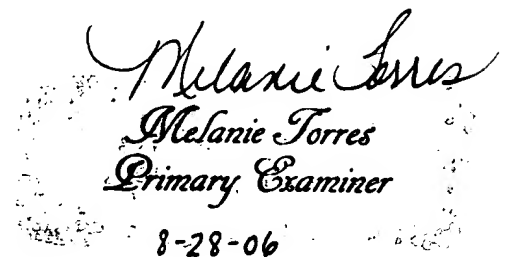 Melanie Torres
Melanie Torres
Primary Examiner
8-28-06